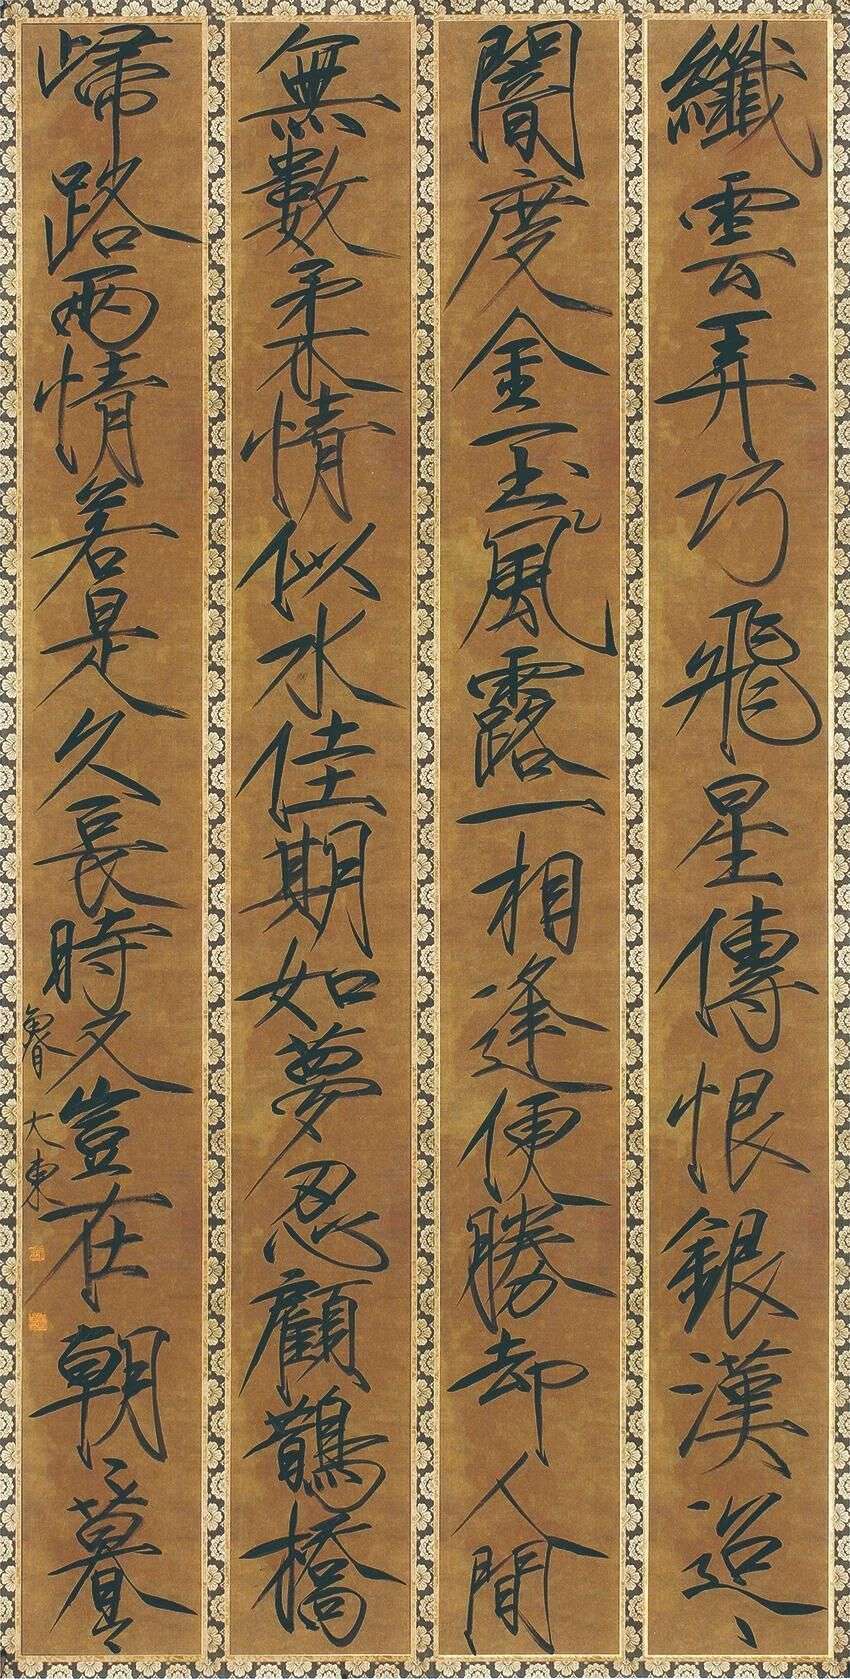 纖雲弄巧飛星傳恨銀漢迢〻
闇度金玉風露一相逢便勝却人間
無數柔情似水佳期如夢忍顧鵲橋
歸路兩情若是久長時又豈在朝〻暮〻
大東